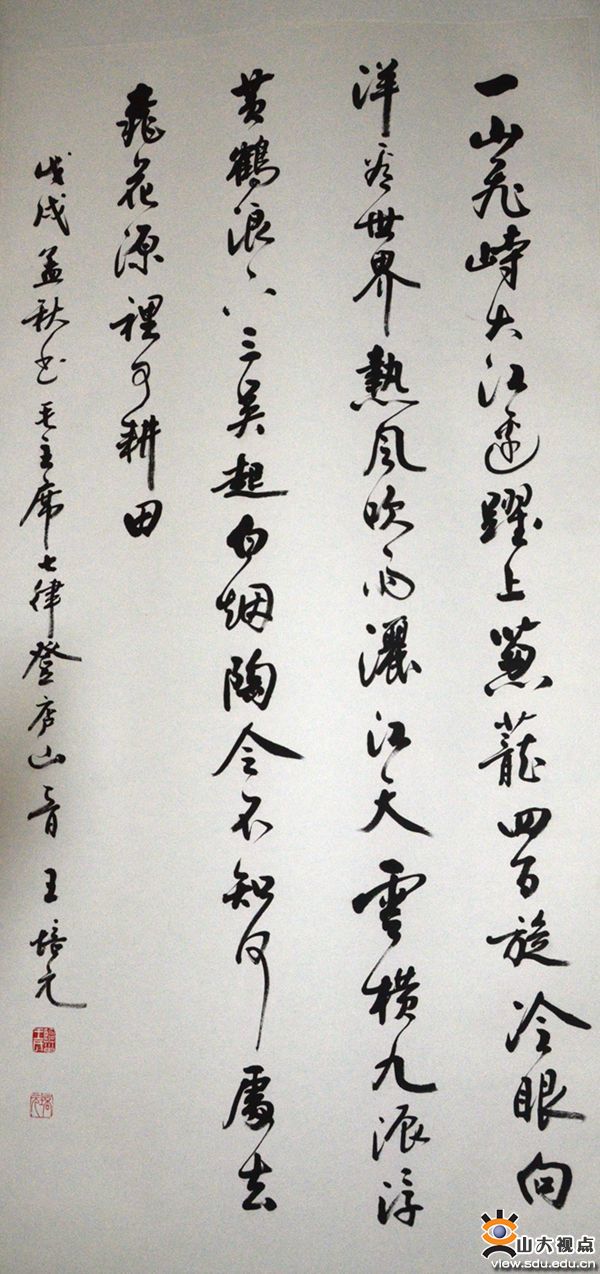 一山飛峙大江邊躍上葱蘢四百旋冷眼向
洋看世界熱風吹雨灑江天雲横九派浮
黄鶴浪下三吴起白烟陶令不知何處去
桃花源裡可耕田
戊戌孟秋书毛主席七律登庐山一首 王培元
山大视点
view.sdu.edu.cn